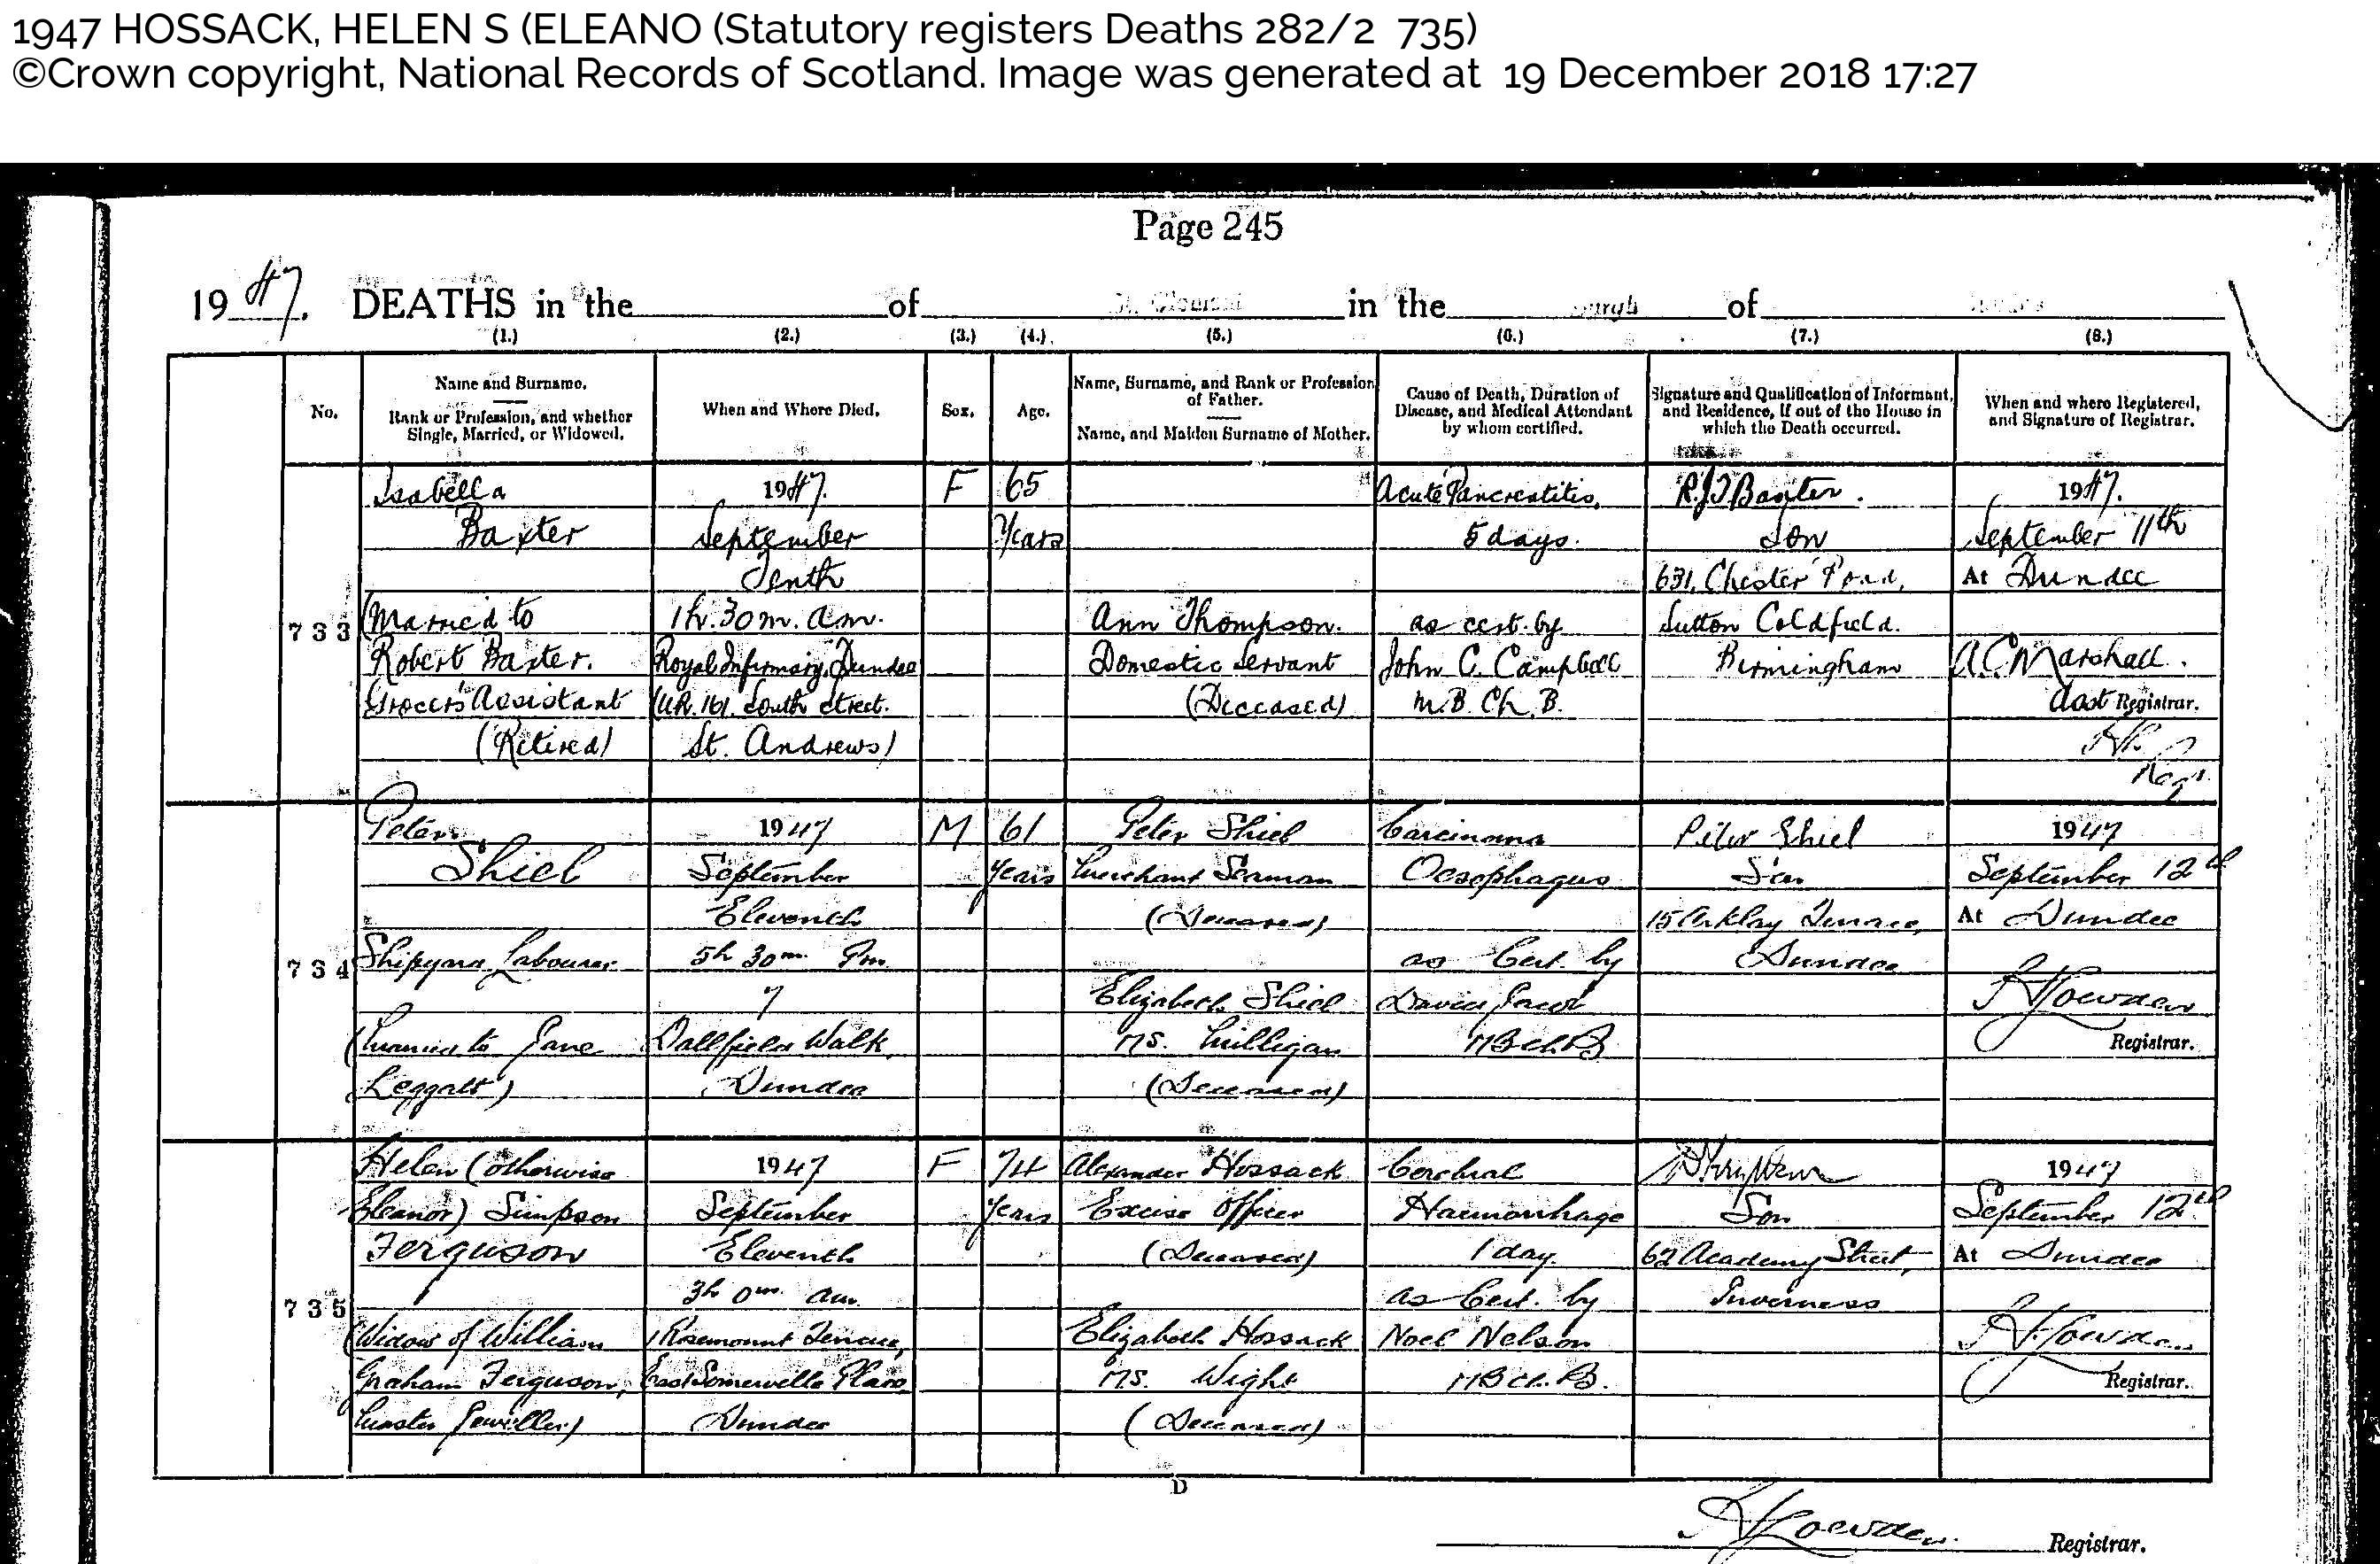 1947 HOSSACK, HELEN S (ELEANO (Statutory registers Deaths 282/2 735)
©Crown copyright, National Records of Scotland. Image was generated at 19 December 2018 17:27
Page 245
1947. DEATHS in the of St. Clement in the Burgh of
(1.) (2.) (3.) (4.) (5.) (6.) (7.) (8.)
No.
Name and Surname.
Rank or Profession, and whether
Single, Married, or Widowed.
When and Where Died.
Sex.
Age.
Name, Surname, and Rank or Profession
of Father.
Name, and Maiden Surname of Mother.
Cause of Death, Duration of
Disease, and Medical Attendant
by whom certified.
Signature and Qualification of Informant,
and Residence, if out of the House in
which the Death occurred.
When and where Registered,
and Signature of Registrar.
733
Isabella
Baxter
(Married to
Robert Baxter.
Grocer's Assistant
(Retired)
1947.
September
Tenth
1h. 30m. a.m.
Royal Infirmary, Dundee
(U.R. 161. South Street.
St. Andrews)
F
65
Years
Ann Thompson.
Domestic Servant
(Deceased)
Acute Pancreatitis,
5 days.
as cert. by
John C. Campbell
M.B. Ch. B.
R.J.T. Baxter.
Son
631, Chester Road,
Sutton Coldfield.
Birmingham
1947.
September 11th
At Dundee
A.C. Marshall.
Asst Registrar.
Regr.
734
Peter
Shiel
Shipyard Labourer
(Married to Jane
Leggatt)
1947
September
Eleventh
5h 30m Pm.
7
Dallfield Walk,
Dundee
M
61
Years
Peter Shiel
Merchant Seaman
(Deceased)
Elizabeth Shiel
M.S. Milligan
(Deceased)
Carcinoma
Oesophagus
as Cert. by
David
MB Ch. B
Peter Shiel
Son
15 Arklay Terrace,
Dundee
1947
September 12th
At Dundee
Registrar.
735
Helen (otherwise
Eleanor) Simpson
Ferguson
(Widow of William
Graham Ferguson,
Master Jeweller)
1947
September
Eleventh
3h 0m am.
1 Rosemount Terrace,
East Somerville Place,
Dundee
F
74
Years
Alexander Hossack
Excise Officer
(Deceased)
Elizabeth Hossack
M.S. Wight
(Deceased)
Cerebral
Haemorrhage
1 day.
as Cert. by
Noel Nelson
MB Ch. B.
Son
62 Academy Street,
Inverness
1947
September 12th
At Dundee
Registrar.
D
Registrar.